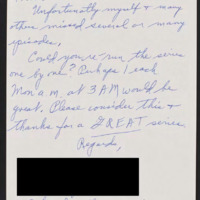 Unfortunatly myself & many
others missed several or many
episodes.
Could you re-run the series
one by one? Perhaps 1 each
Mon a.m. at 3 AM would be
great. Please consider this &
thanks for a GREAT series
Regards,